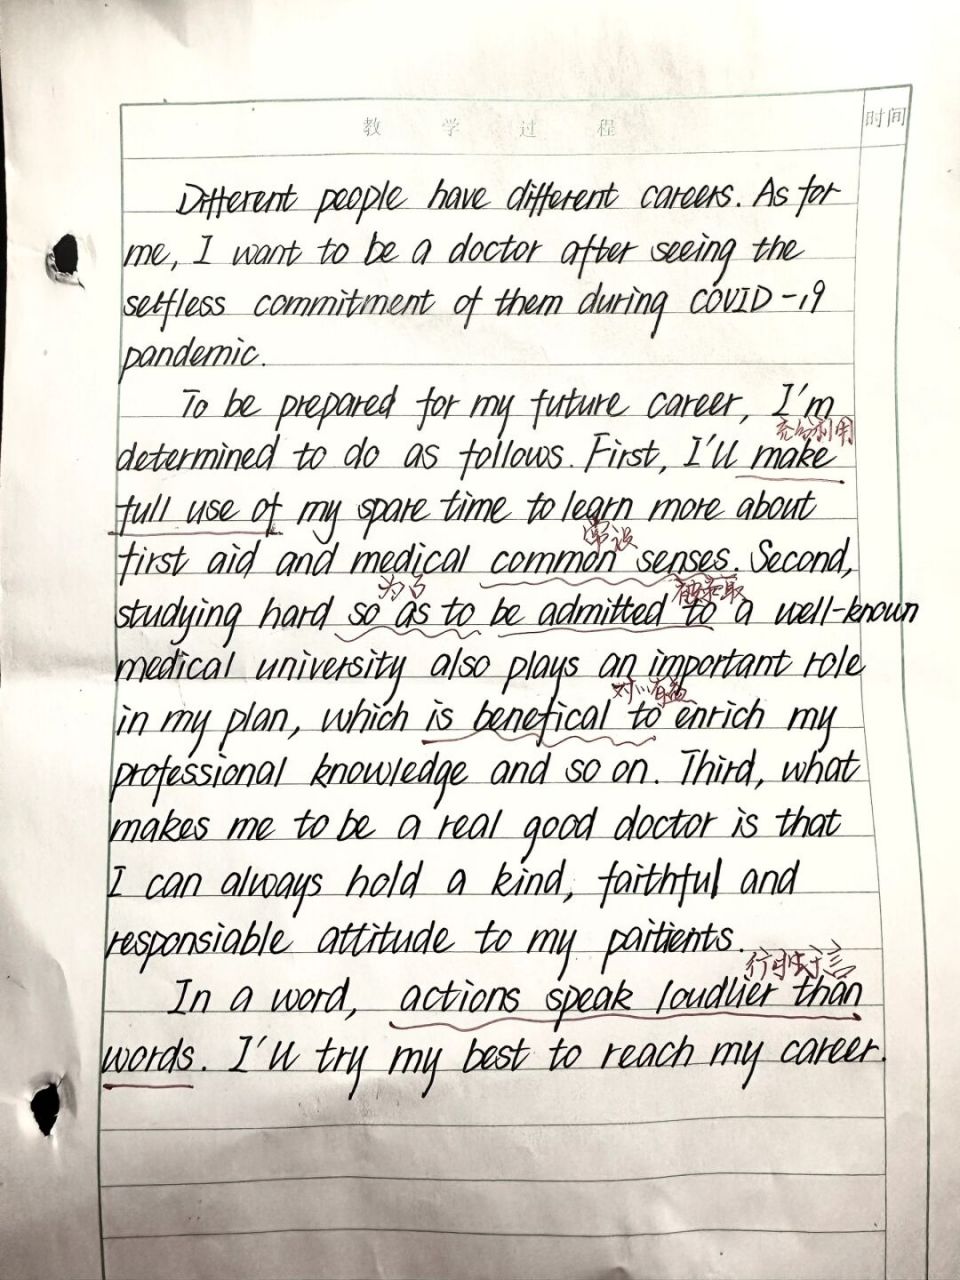 教学过程
时间
Different people have different careers. As for
me, I want to be a doctor after seeing the
selfless commitment of them during COVID-19
pandemic.
To be prepared for my future career, I'm
充分利用
determined to do as follows. First, I'll make
full use of my spare time to learn more about
常识
first aid and medical common senses. Second,
为了 被录取
studying hard so as to be admitted to a well-known
medical university also plays an important role
对…有益
in my plan, which is benefical to enrich my
professional knowledge and so on. Third, what
makes me to be a real good doctor is that
I can always hold a kind, faithful and
responsiable attitude to my paitients.
行胜于言
In a word, actions speak loudlier than
words. I'll try my best to reach my career.